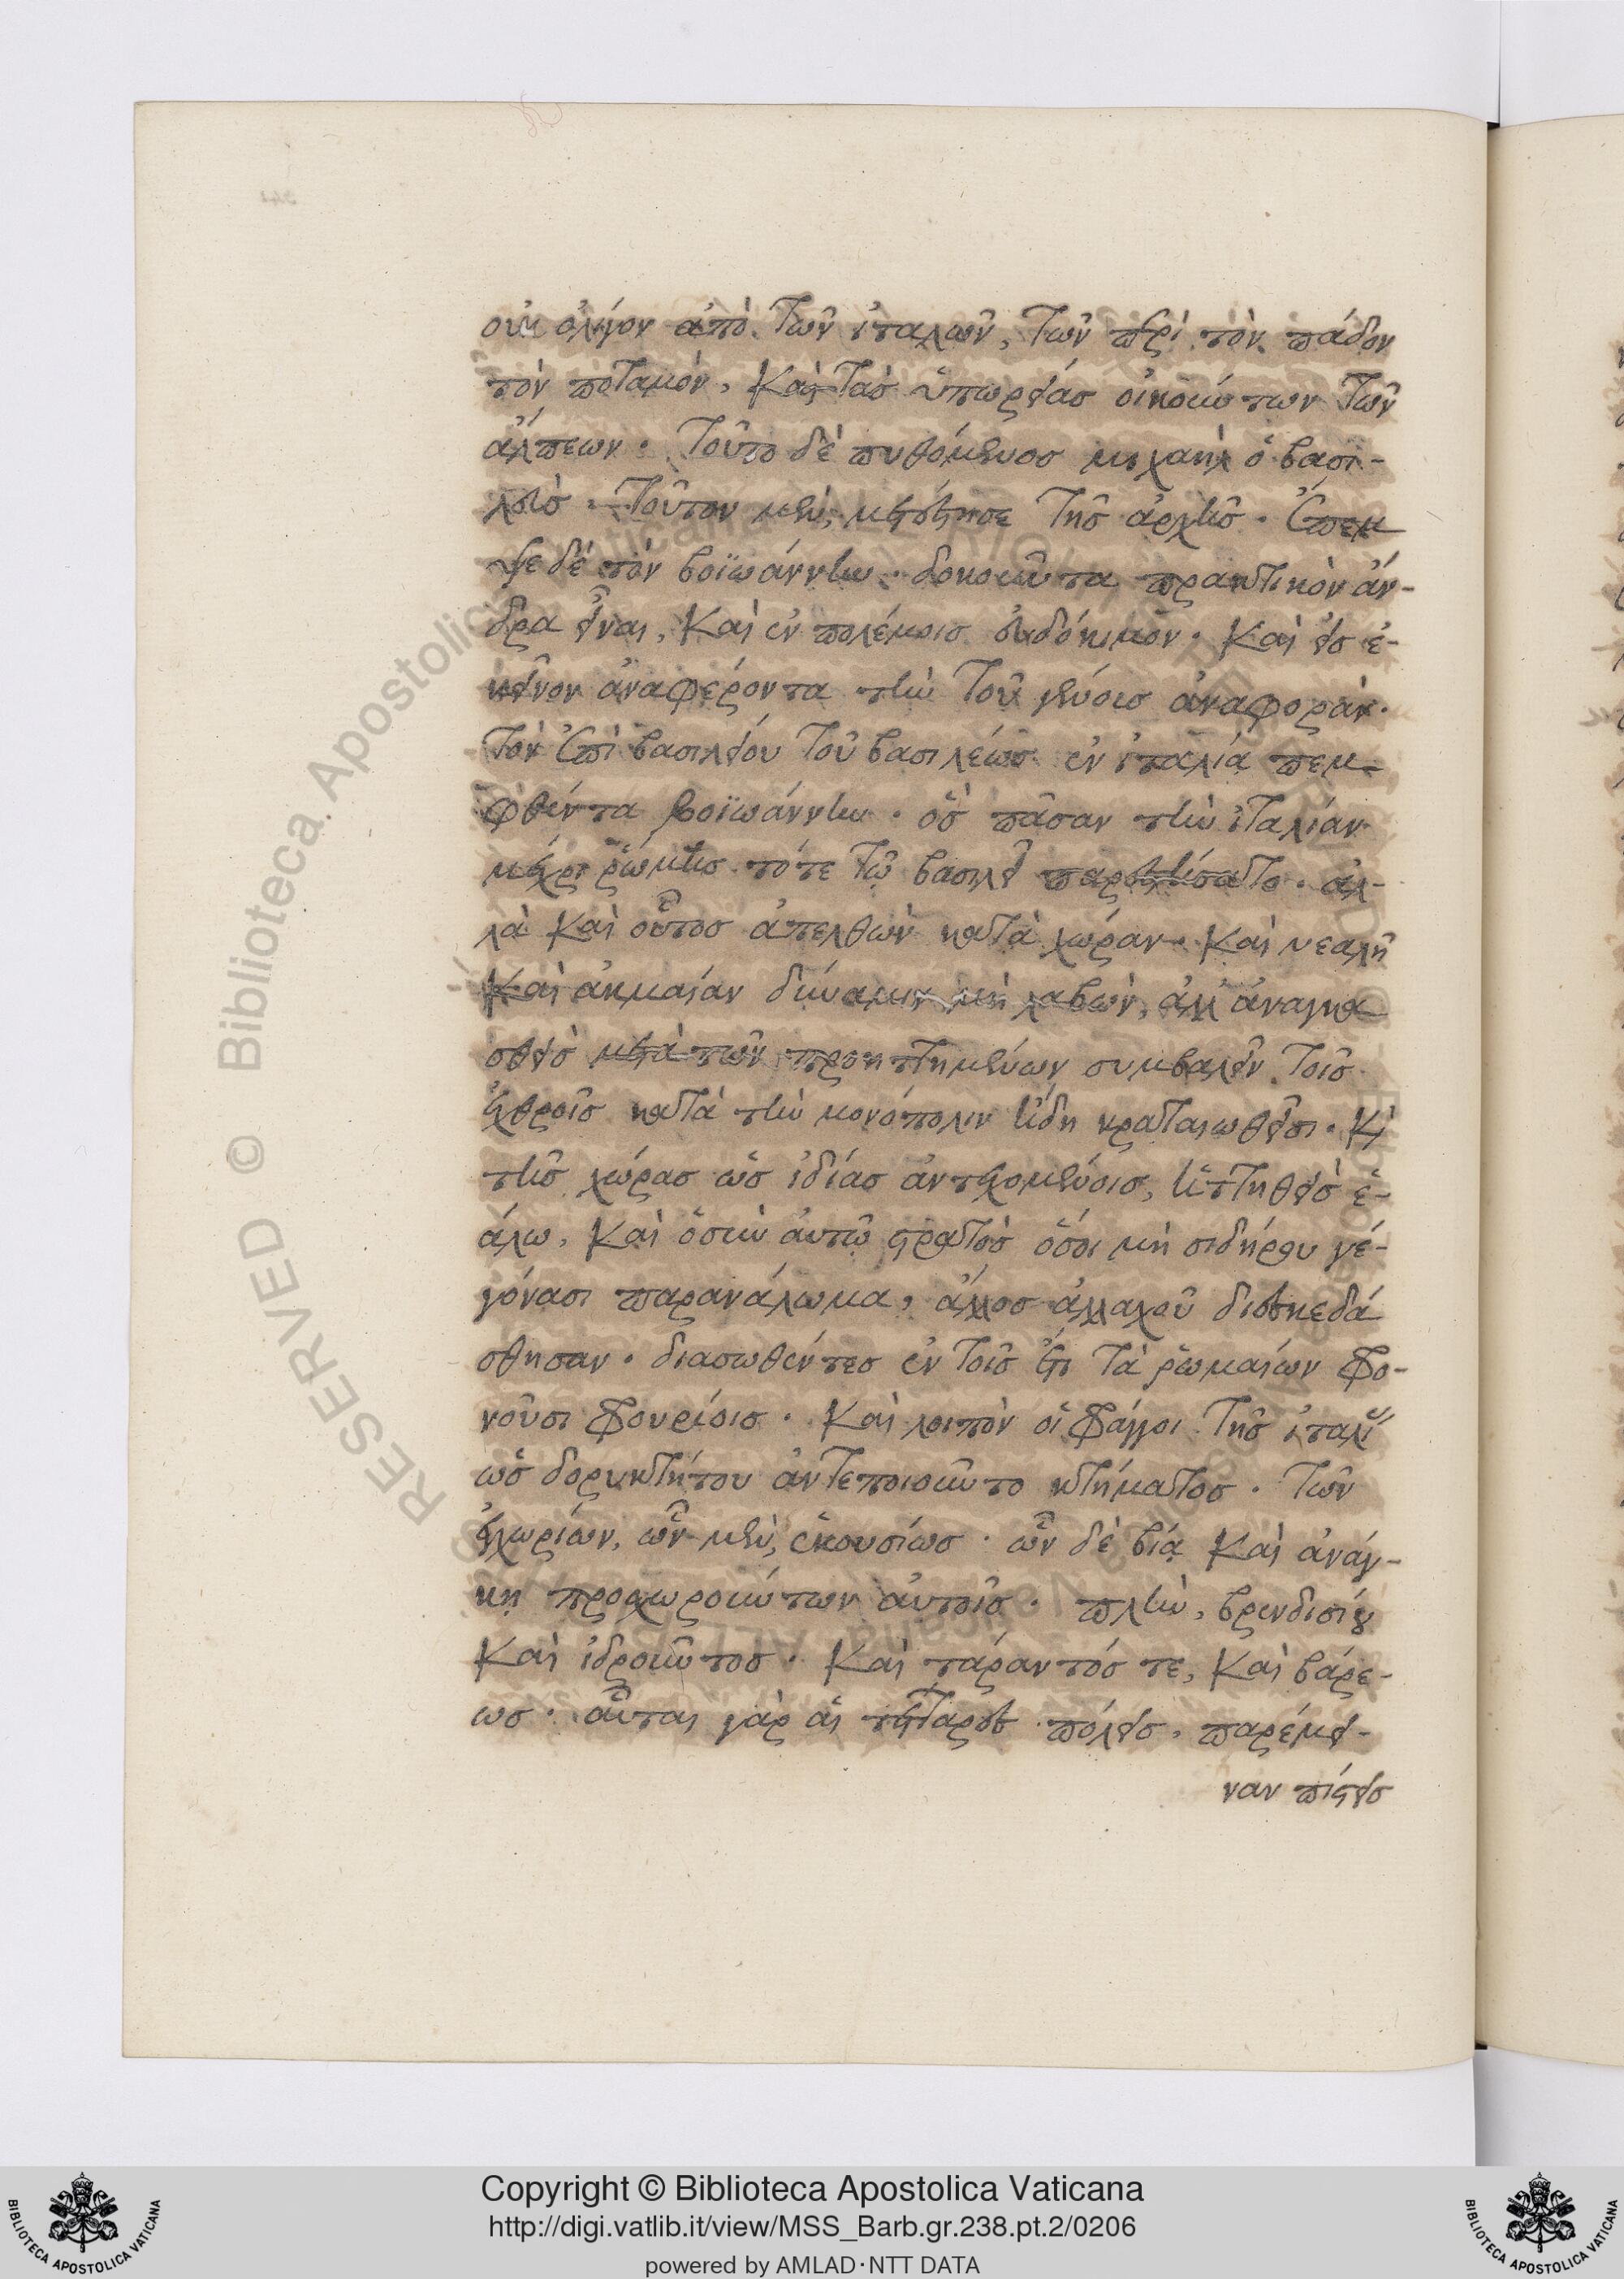 οὐκ ὀλίγον ἀπὸ τῶν ἰταλῶν, τῶν περὶ τὸν πάδον
τὸν ποταμόν, καὶ τὰσ ὑπωρείασ οἰκούντων τῶν
ἄλπεων. τοῦτο δὲ πυθόμενοσ μιχαὴλ ὁ βασι-
λεὺσ. τοῦτον μὲν, μετέστησε τῆσ ἀρχῆσ. ἔπεμ
ψε δὲ τὸν βοϊωάννην. δοκοῦντα πρακτικὸν ἄν-
δρα εἶναι, καὶ ἐν πολέμοισ εὐδόκιμον. καὶ εἰσ ἐ-
κεῖνον ἀναφέροντα τὴν τοῦ γένουσ ἀναφοράν.
τὸν ἐπὶ βασιλείου τοῦ βασιλέωσ ἐν ἰταλία πεμ
φθέντα βοϊωάννην. ὃσ πᾶσαν τὴν ἰταλίαν
μέχρι ῥώμησ τότε τῷ βασιλεῖ παρεστήσατο. ἀλ-
λὰ καὶ οὗτοσ ἀπελθὼν κατὰ χώραν. καὶ νεαλῆ
καὶ ἀκμαίαν δύναμιν μὴ λαβὼν, ἀλλ' ἀναγκα
σθεὶσ μετὰ τῶν προηττημένων συμβαλεῖν τοῖσ
ἐχθροῖσ κατὰ τὴν μονόπολιν ἤδη κραταιωθεῖσι. καὶ
τῆσ χώρασ ὡσ ἰδίασ ἀντεχομένοισ, ἡττηθεὶσ ἑ-
άλω. καὶ ὁ σὺν αὐτῷ στρατὸσ ὅσοι μὴ σιδήρου γε-
γόνασι παρανάλωμα, ἄλλοσ ἀλλαχοῦ διεσκεδά
σθησαν. διασωθέντεσ ἐν τοῖσ ἔτι τὰ ῥωμαίων φρο-
νοῦσι φρουρίοισ. καὶ λοιπὸν οἱ φράγγοι τῆσ ἰταλίασ
ὡσ δορυκτήτου ἀντεποιοῦντο κτήματοσ. τῶν
ἐγχωρίων, ὧν μὲν, ἑκουσίωσ. ὧν δὲ βίᾳ καὶ ἀνάγ-
κῃ προσχωρούντων αὐτοῖσ. πλὴν, βρενδισίου
καὶ ἱδροῦντοσ. καὶ τάραντόσ τε, καὶ βάρε-
ωσ. αὗται γὰρ αἱ τέτταρεσ πόλεισ, παρέμει-
ναν πίστεισ
Copyright © Biblioteca Apostolica Vaticana
http://digi.vatlib.it/view/MSS_Barb.gr.238.pt.2/0206
powered by AMLAD·NTT DATA